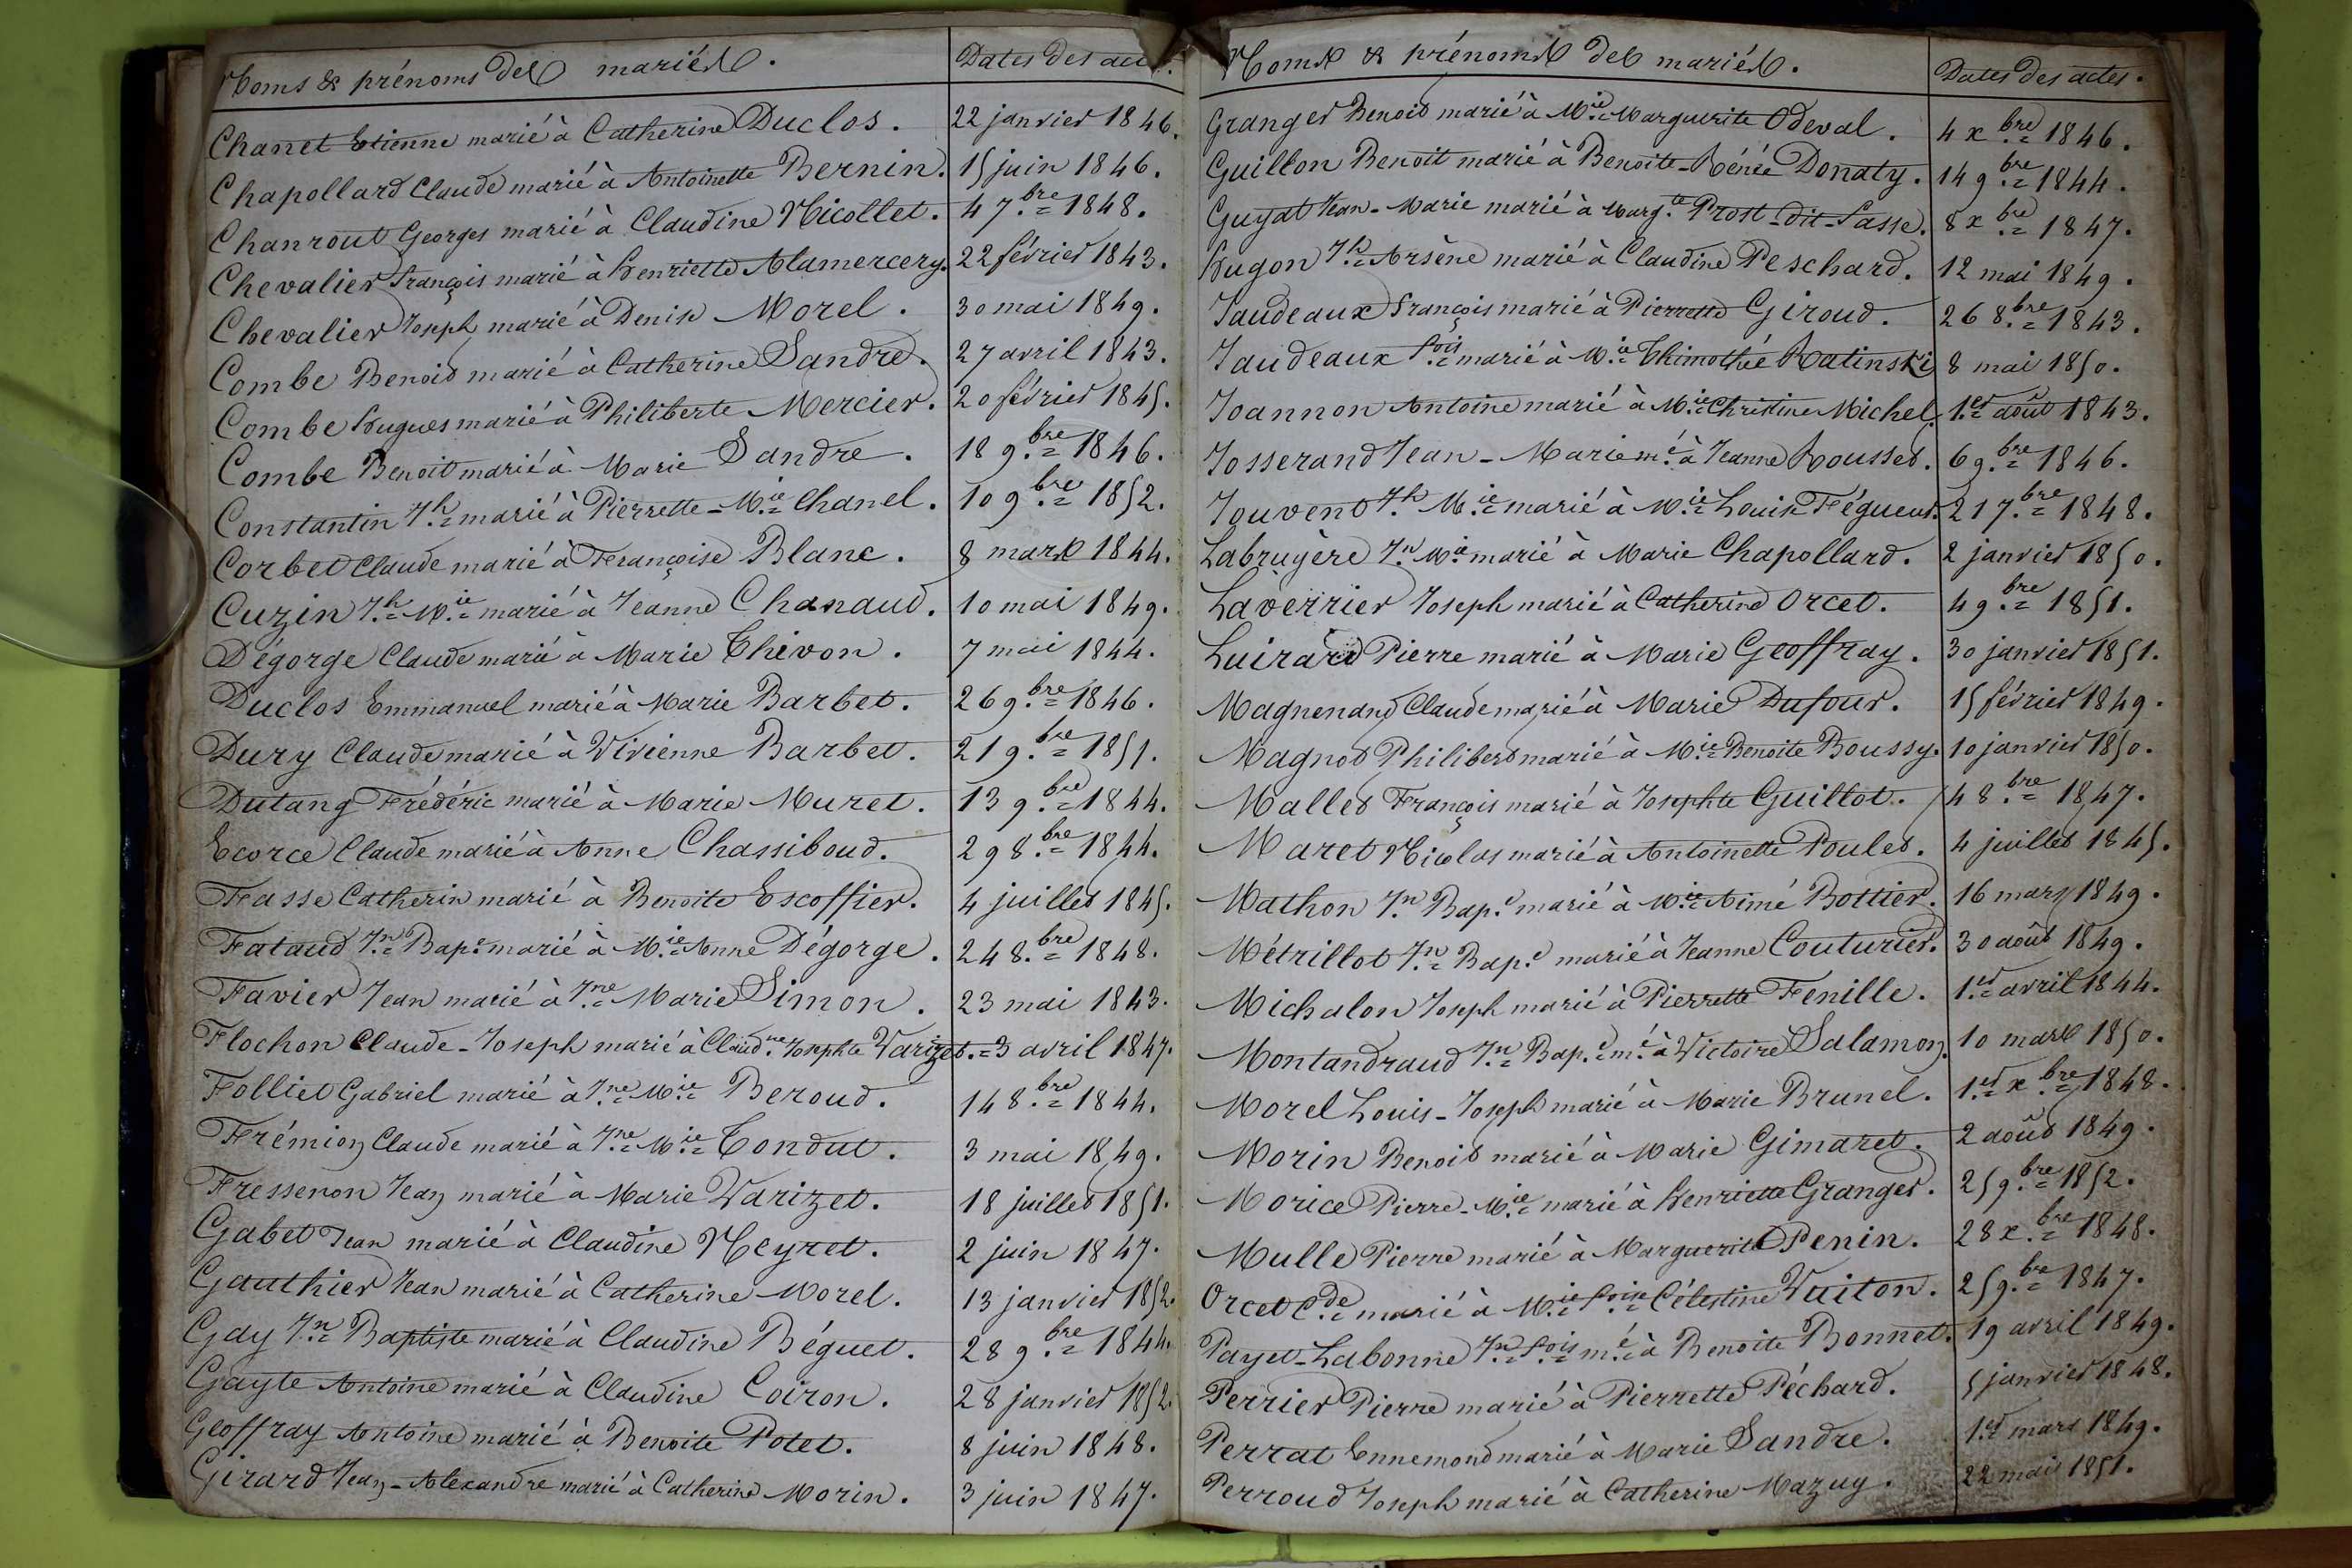 Noms & prénoms des mariés.
Dates des actes.
Chanel Etienne marié à Catherine Duclos. 22 janvier 1846.
Chapollard Claude marié à Antoinette Bernin. 15 juin 1846.
Chanrout Georges marié à Claudine Nicollet. 4 7.bre 1848.
Chevalier françois marié à henriette Alamercery. 22 février 1843.
Chevalier Joseph marié à Denise Morel. 30 mai 1849.
Combe Benoit marié à Catherine Sandre. 27 avril 1843.
Combe hugues marié à Philiberte Mercier. 20 février 1845.
Combe Benoit marié à Marie Sandre. 18 9.bre 1846.
Constantin J.h marié à Pierrette-M.ie Chanel. 10 9.bre 1852.
Corbet Claude marié à Françoise Blanc. 8 mars 1844.
Cuzin J.h M.ie marié à Jeanne Chanaud. 10 mai 1849.
Dégorge Claude marié à Marie Thivon. 7 mai 1844.
Duclos Emmanuel marié à Marie Barbet. 26 9.bre 1846.
Dury Claude marié à Vivienne Barbet. 21 9.bre 1851.
Dutang Frédéric marié à Marie Muret. 13 9.bre 1844.
Ecorce Claude marié à Anne Chassiboud. 29 8.bre 1844.
Fasse Catherin marié à Benoite Escoffier. 4 juillet 1845.
Fataud J.n Bap.e marié à M.ie Anne Dégorge. 24 8.bre 1848.
Favier Jean marié à J.ne Marie Simon. 23 mai 1843.
Flochon Claude-Joseph marié à Claud.ne Josephte Varizet. = 3 avril 1847.
Folliet Gabriel marié à J.ne M.ie Beroud. 14 8.bre 1844.
Frémion Claude marié à J.ne M.ie Tondut. 3 mai 1849.
Fressenon Jean marié à Marie Varizet. 18 juillet 1851.
Gabet Jean marié à Claudine Neyret. 2 juin 1847.
Gauthier Jean marié à Catherine Morel. 13 janvier 1852.
Gay J.n Baptiste marié à Claudine Béguet. 28 9.bre 1844.
Gayte Antoine marié à Claudine Coiron. 28 janvier 1852.
Geoffray Antoine marié à Benoite Potet. 8 juin 1848.
Girard Jean-Alexandre marié à Catherine Morin. 3 juin 1847.
Noms & prénoms des mariés.
Dates des actes.
Granger Benoit marié à M.ie Marguerite Odeval. 4 x.bre 1846.
Guillon Benoit marié à Benoite-Rénée Donaty. 14 9.bre 1844.
Guyat Jean-Marie marié à Marg.te Prost-dit-Lasse. 8 x.bre 1847.
hugon J.h Arsène marié à Claudine Peschard. 12 mai 1849.
Jaudeaux françois marié à Pierrette Giroud. 26 8.bre 1843.
Jaudeaux f.ois marié à M.ie Thimothée Ratinski 8 mai 1850.
Joannon Antoine marié à M.ie Christine Michel. 1.er août 1843.
Josserand Jean-Marie m.é à Jeanne Rousset. 6 9.bre 1846.
Jouvent J.h M.ie marié à M.ie Louise Fégueur. 21 7.bre 1848.
Labruyère J.n M.ie marié à Marie Chapollard. 2 janvier 1850.
Laverrier Joseph marié à Catherine Orcet. 4 9.bre 1851.
Luirard Pierre marié à Marie Geoffray. 30 janvier 1851.
Magnenand Claude marié à Marie Dufour. 15 février 1849.
Magnot Philibert marié à M.ie Benoite Boussy. 10 janvier 1850.
Mallet François marié à Josephte Guillot. 14 8.bre 1847.
Maret Nicolas marié à Antoinette Poulet. 4 juillet 1845.
Mathon J.n Bap.e marié à M.ie Aimé Bottier. 16 mars 1849.
Métrillot J.n Bap.e marié à Jeanne Couturier. 30 août 1849.
Michalon Joseph marié à Pierrette Fenille. 1.er avril 1844.
Montandraud J.n Bap.e m.é à Victoire Salamon. 10 mars 1850.
Morel Louis-Joseph marié à Marie Brunel. 1.er x.bre 1848.
Morin Benoit marié à Marie Gimaret. 2 août 1849.
Morice Pierre-M.ie marié à henriette Granger. 25 9.bre 1852.
Mulle Pierre marié à Marguerite Penin. 28 x.bre 1848.
Orcet C.de marié à M.ie f.oise Célestine Vuiton. 25 9.bre 1847.
Payet-Labonne J.n f.ois m.é à Benoite Bonnet. 19 avril 1849.
Perrier Pierre marié à Pierrette Péchard. 5 janvier 1848.
Perrat Ennemond marié à Marie Sandre. 1.er mars 1849.
Perroud Joseph marié à Catherine Mazuy. 22 mai 1851.